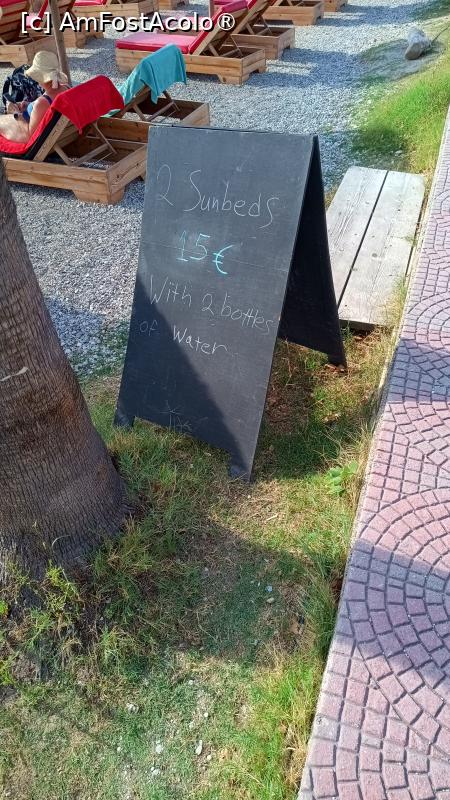 [c] AmFostAcolo®
2 Sunbeds
15€
With 2 bottles
of Water